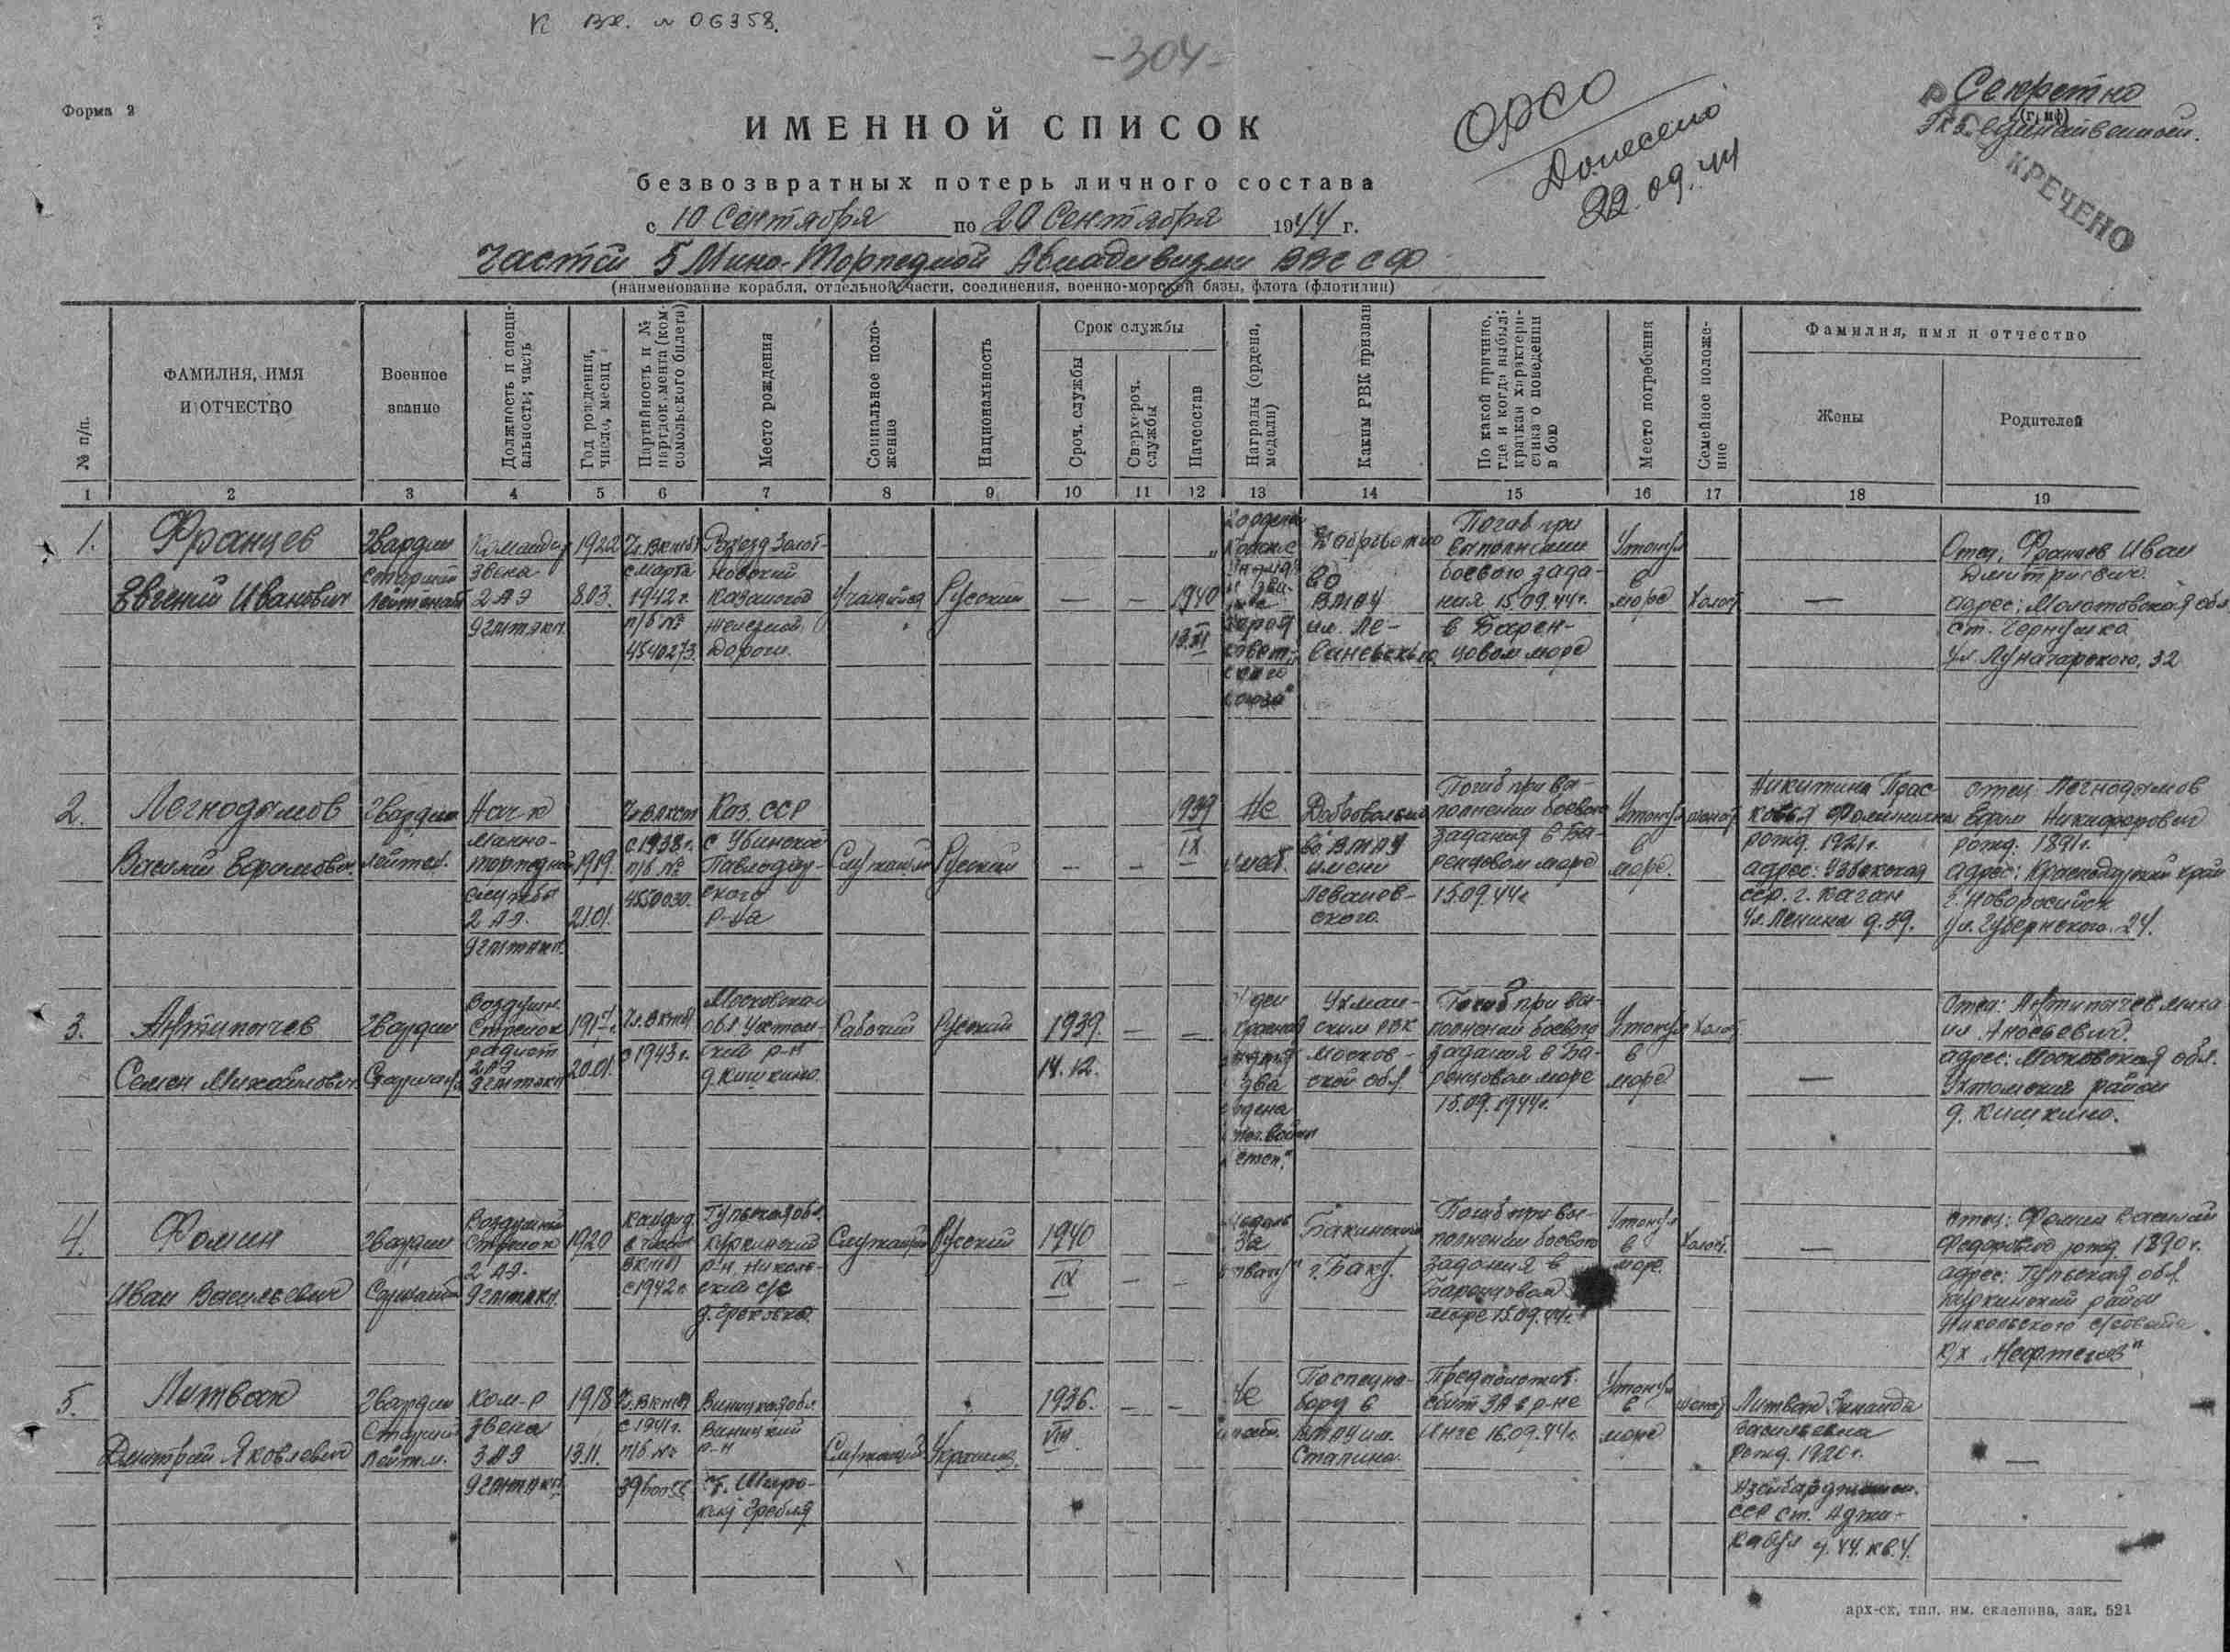 К Вх. № 06358.
-304-
Форма 2
Секретно
ОРСО
Донесено
22.09.44
РАССЕКРЕЧЕНО
ИМЕННОЙ СПИСОК
безвозвратных потерь личного состава
с 10 Сентября по 20 Сентября 1944 г.
Частей 5 Мино-Торпедной Авиадивизии ВВС СФ
(наименование корабля, отдельной части, соединения, военно-морской базы, флота (флотилии)
№ п/п.
ФАМИЛИЯ, ИМЯ И ОТЧЕСТВО
Военное звание
Должность и специальность; часть
Год рождения, число, месяц
Партийность и № партдокумента (комсомольского билета)
Место рождения
Социальное положение
Национальность
Срок службы
Сроч. службы
Сверхсроч. службы
Начсостав
Награды (ордена, медали)
Каким РВК призван
По какой причине, где и когда выбыл; краткая характеристика о поведении в бою
Место погребения
Семейное положение
Фамилия, имя и отчество
Жены
Родителей
1 2 3 4 5 6 7 8 9 10 11 12 13 14 15 16 17 18 19
1.
Францев
Евгений Иванович
Гвардии
старший
лейтенант
Командир
звена
2 АЭ
9 гмтакп
1922
8.03.
Чл. ВКП(б)
с марта
1942 г.
п/б №
4540273.
Раз'езд Золот-
новский
Казанской
железной
дороги.
Учащийся
Русский
—
—
1940
Добровольно
во
ВМАУ
им. Ле-
ваневского
Погиб при
выполнении
боевого зада-
ния 15.09.44г.
в Барен-
цовом море
Утонул
в
море
Холост
—
Отец: Францев Иван
Дмитриевич.
адрес: Молотовская обл
ст. Чернушка
ул. Луначарского, 32
2.
Легнодымов
Василий Ефимович
Гвардии
лейтен.
Нач-к
минно-
торпедной
службы
2 АЭ.
9 гмтакп.
1919.
21.01.
Чл. ВКП(б)
с 1938 г.
п/б №
4550030.
Каз. ССР
с Убинское
Павлодар-
ского
р-на
Служащий
Русский
—
—
1939
IX
Не
имеет.
Добровольно
во ВМАУ
имени
Леванев-
ского.
Погиб при вы-
полнении боевого
задания в Ба-
ренцовом море
15.09.44г
Утонул
в
море.
женат
Никитина Прас-
ковья
рожд. 1921 г.
адрес: Узбекская
ССР. г. Каган
ул. Ленина д. 39.
отец Легнодымов
Ефим Никифорович
рожд. 1891 г.
адрес: Краснодарский край
г. Новоросийск
ул. Губернского. 24.
3.
Антипычев
Семен Михайлович
Гвардии
Старшина
Воздушн.
Стрелок
радист
2 АЭ
9 гмтакп
20.01.
Чл. ВКП(б)
с 1943 г.
Московская
обл Ухтом-
ский р-н
д. Кишкино.
Рабочий
Русский
1939.
14.12.
—
—
Ухтом-
ским РВК
Москов-
ской обл.
Погиб при вы-
полнении боевого
задания в Ба-
ренцовом море
15.09.1944г.
Утонул
в
море
Холост
—
Отец: Антипычев Миха-
ил
адрес: Московская обл.
Ухтомский район
д. Кишкино.
4.
Фомин
Иван Васильевич
Гвардии
Сержант
Воздушный
Стрелок
2 АЭ.
9 гмтакп.
1920
Кандид.
в члены
ВКП(б)
с 1942 г
Тульская обл.
Куркинский
р-н Николь-
ский с/с
Служащий
Русский
1940
IX
—
—
Бакинским
г. Баку.
Погиб при вы-
полнении боевого
задания в
Баренцовом
море 15.09.44г.
Утонул
в
море.
Холост.
—
отец: Фомин Василий
Федорович рожд 1890 г.
адрес: Тульская обл.
Куркинский район
Никольского с/совета
5.
Литвак
Дмитрий Яковлевич
Гвардии
Старший
лейтен.
Ком-р
звена
3 АЭ
9 гмтакп.
1918
13.11.
Чл. ВКП(б)
с 1941 г.
п/б №
Виницкая обл.
Виницкий
р-н
Служащий
Украинец.
1936.
VIII
—
—
Не
имеет.
По спецна-
бору в
ВМАУ им.
Сталина.
Предположит.
сбит ЗА в р-не
Инге 16.09.44г.
Утонул
в
море
женат
Литвак Зинаида
Васильевна
рожд. 1920 г.
Азейбарджанск.
ССР ст. Аджи-
кабул д. 44. кв. 4.
—
арх-ск, тип. им. склепина, зак. 521